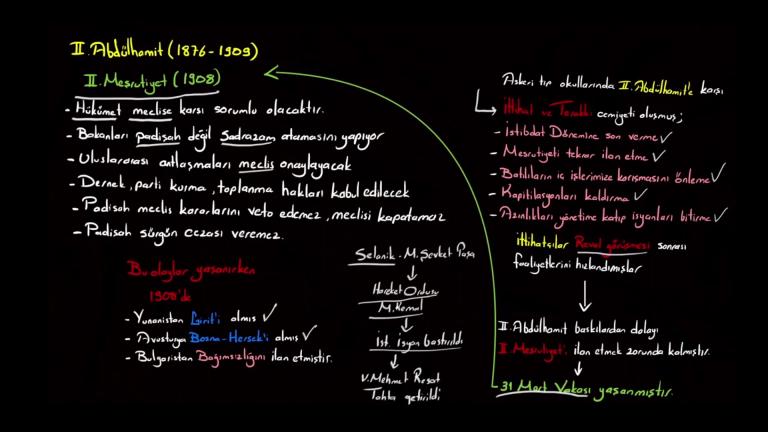 II. Abdülhamit (1876-1909)
II. Meşrutiyet (1908)
- Hükümet meclise karşı sorumlu olacaktır.
- Bakanları padişah değil Sadrazam atamasını yapıyor
- Uluslararası antlaşmaları meclis onaylayacak
- Dernek, parti kurma, toplanma hakları kabul edilecek
- Padişah meclis kararlarını veto edemez, meclisi kapatamaz
- Padişah sürgün cezası veremez.
Bu olaylar yaşanırken
1908'de
- Yunanistan Girit'i almış ✓
- Avusturya Bosna-Hersek'i almış ✓
- Bulgaristan Bağımsızlığını ilan etmiştir.
Selanik - M. Şevket Paşa
Hareket Ordusu
M. Kemal
ist. isyan bastırıldı
V. Mehmet Reşat
Tahta getirildi
Askeri tıp okullarında II. Abdülhamit'e karşı
İttihat ve Terakki cemiyeti oluşmuş;
- İstibdat Dönemine son verme ✓
- Meşrutiyeti tekrar ilan etme ✓
- Batılıların iç işlerimize karışmasını önleme ✓
- Kapitilasyonları kaldırma ✓
- Azınlıkları yönetime katıp isyanları bitirme ✓
ittihatçılar Reval görüşmesi sonrası
faaliyetlerini hızlandırmışlar
II. Abdülhamit baskılardan dolayı
II. Meşrutiyet'i ilan etmek zorunda kalmıştır.
- 31 Mart Vakası yaşanmıştır.